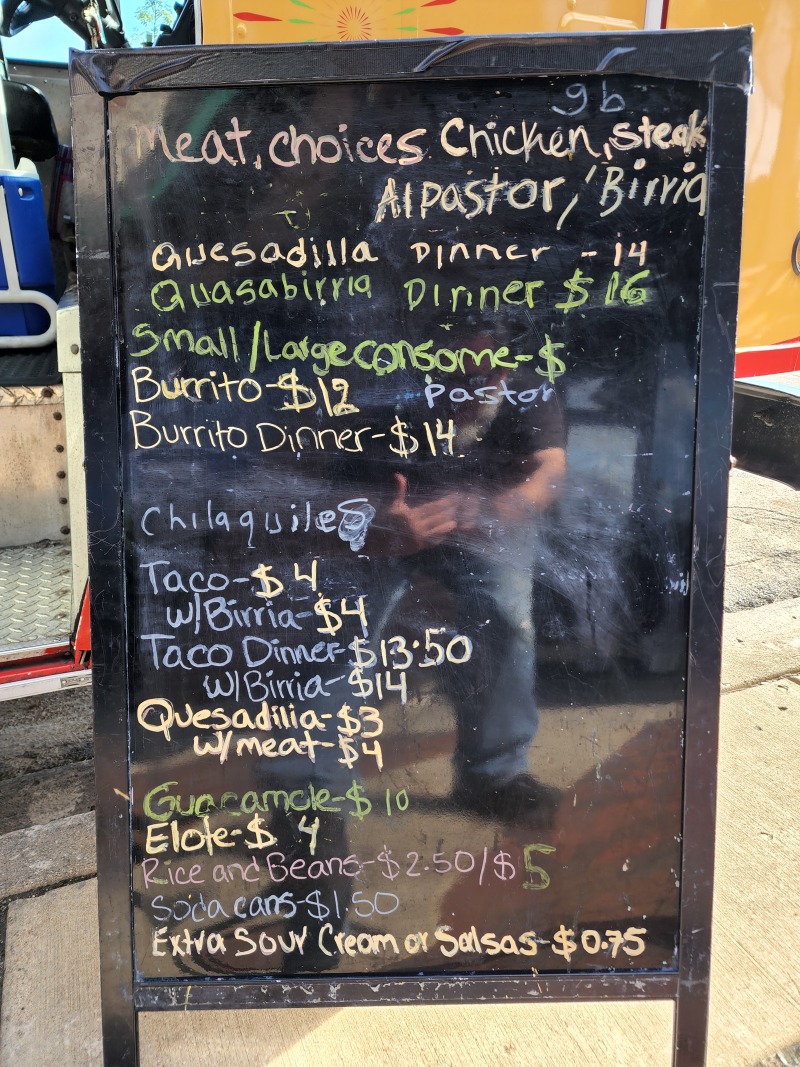 gb
Meat, choices Chicken, steak
Al pastor, Birria
Quesadilla Dinner - 14
Quasabirria Dinner $16
Small/Large consome-$
Burrito-$12 Pastor
Burrito Dinner-$14
Chilaquiles
Taco-$4
w/Birria-$4
Taco Dinner-$13.50
w/Birria-$14
Quesadilla-$3
w/meat-$4
Guacamole-$10
Elote-$4
Rice and Beans-$2.50/$5
Soda cans-$1.50
Extra Sour Cream or Salsas-$0.75